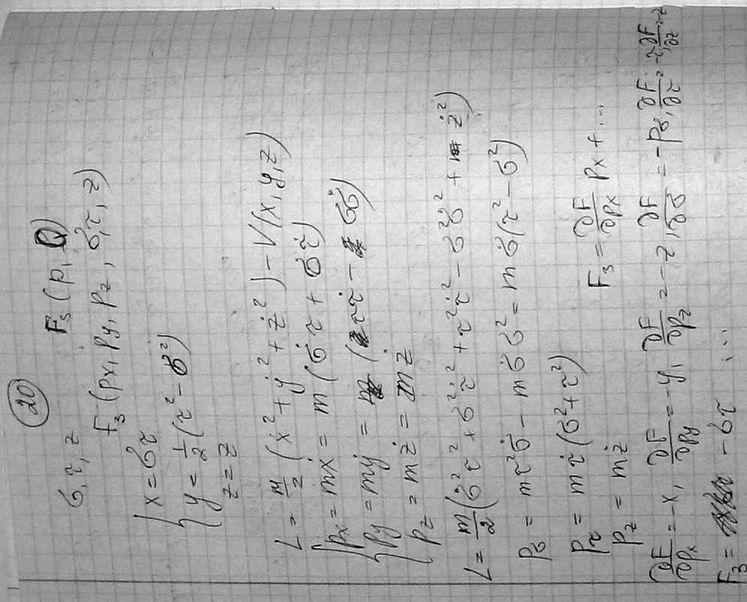 20
σ, τ, z F₃(p, Q)
F₃(px, py, pz, σ, τ, z)
{ x = στ
y = 1/2 (τ² - σ²)
z = z
L = m/2 (ẋ² + ẏ² + ż²) - V(x, y, z)
{ px = mẋ = m(σ̇τ + στ̇)
py = mẏ = m(ττ̇ - σσ̇)
pz = mż = mż
L = m/2 (σ̇²τ² + σ²τ̇² + τ²τ̇² - σ²σ̇² + ż²)
pσ = mτ²σ̇ - mσ̇σ² = mσ̇(τ² - σ²)
pτ = mτ̇(σ² + τ²)
pz = mż F₃ = ∂F/∂px px + ...
∂F/∂px = -x, ∂F/∂py = -y, ∂F/∂pz = -z, ∂F/∂σ = -pσ, ∂F/∂τ = -τ, ∂F/∂z = -z
F₃ = -στ ...